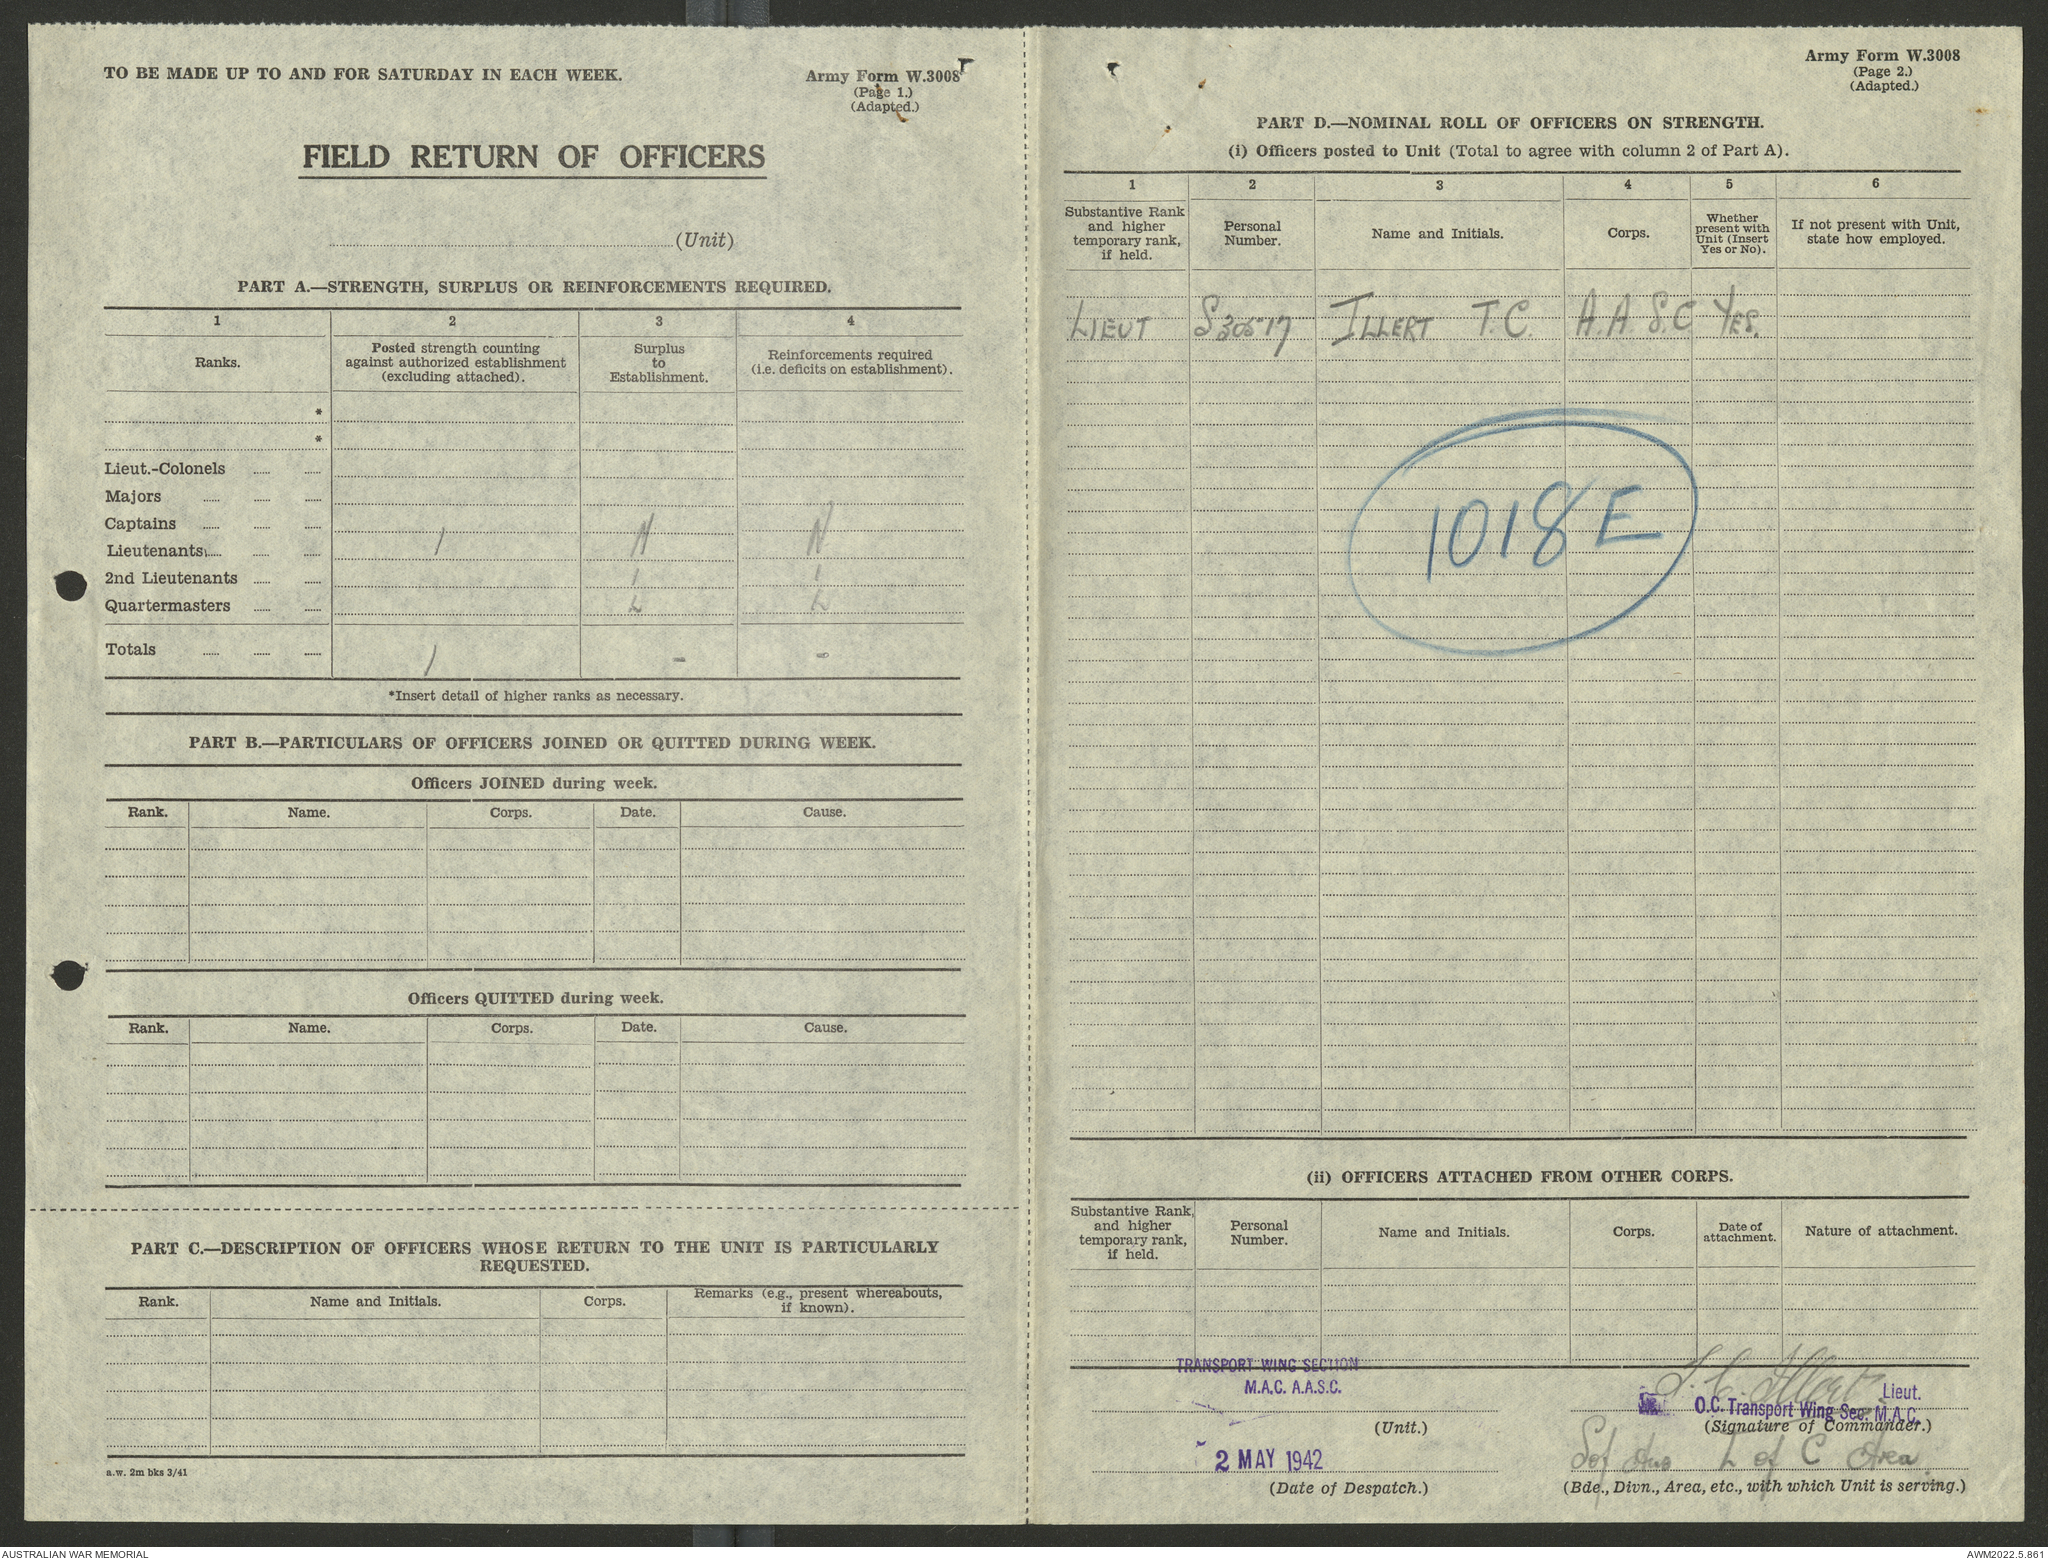 TO BE MADE UP TO AND FOR SATURDAY IN EACH WEEK.
Army Form W.3008
(Page 1.)
(Adapted.)
FIELD RETURN OF OFFICERS
(Unit)
PART A.—STRENGTH, SURPLUS OR REINFORCEMENTS REQUIRED.
1 2 3 4
Ranks.
Posted strength counting
against authorized establishment
(excluding attached).
Surplus
to
Establishment.
Reinforcements required
(i.e. deficits on establishment).
*
*
Lieut.-Colonels
Majors
Captains
Lieutenants 1 N N
2nd Lieutenants I I
Quartermasters L L
Totals 1 - -
*Insert detail of higher ranks as necessary.
PART B.—PARTICULARS OF OFFICERS JOINED OR QUITTED DURING WEEK.
Officers JOINED during week.
Rank. Name. Corps. Date. Cause.
Officers QUITTED during week.
Rank. Name. Corps. Date. Cause.
PART C.—DESCRIPTION OF OFFICERS WHOSE RETURN TO THE UNIT IS PARTICULARLY
REQUESTED.
Rank. Name and Initials. Corps.
Remarks (e.g., present whereabouts,
if known).
a.w. 2m bks 3/41
Army Form W.3008
(Page 2.)
(Adapted.)
PART D.—NOMINAL ROLL OF OFFICERS ON STRENGTH.
(i) Officers posted to Unit (Total to agree with column 2 of Part A).
1 2 3 4 5 6
Substantive Rank
and higher
temporary rank,
if held.
Personal
Number.
Name and Initials.
Corps.
Whether
present with
Unit (Insert
Yes or No).
If not present with Unit,
state how employed.
LIEUT S30517 ILLERT T.C. A.A.S.C YES.
1018E
(ii) OFFICERS ATTACHED FROM OTHER CORPS.
Substantive Rank,
and higher
temporary rank,
if held.
Personal
Number.
Name and Initials.
Corps.
Date of
attachment.
Nature of attachment.
TRANSPORT WING SECTION
M.A.C. A.A.S.C.
(Unit.)
2 MAY 1942
(Date of Despatch.)
T. C. Illert Lieut.
O.C. Transport Wing Sec. M.A.C.
(Signature of Commander.)
L of C Area
(Bde., Divn., Area, etc., with which Unit is serving.)
AUSTRALIAN WAR MEMORIAL
AWM2022.5.861